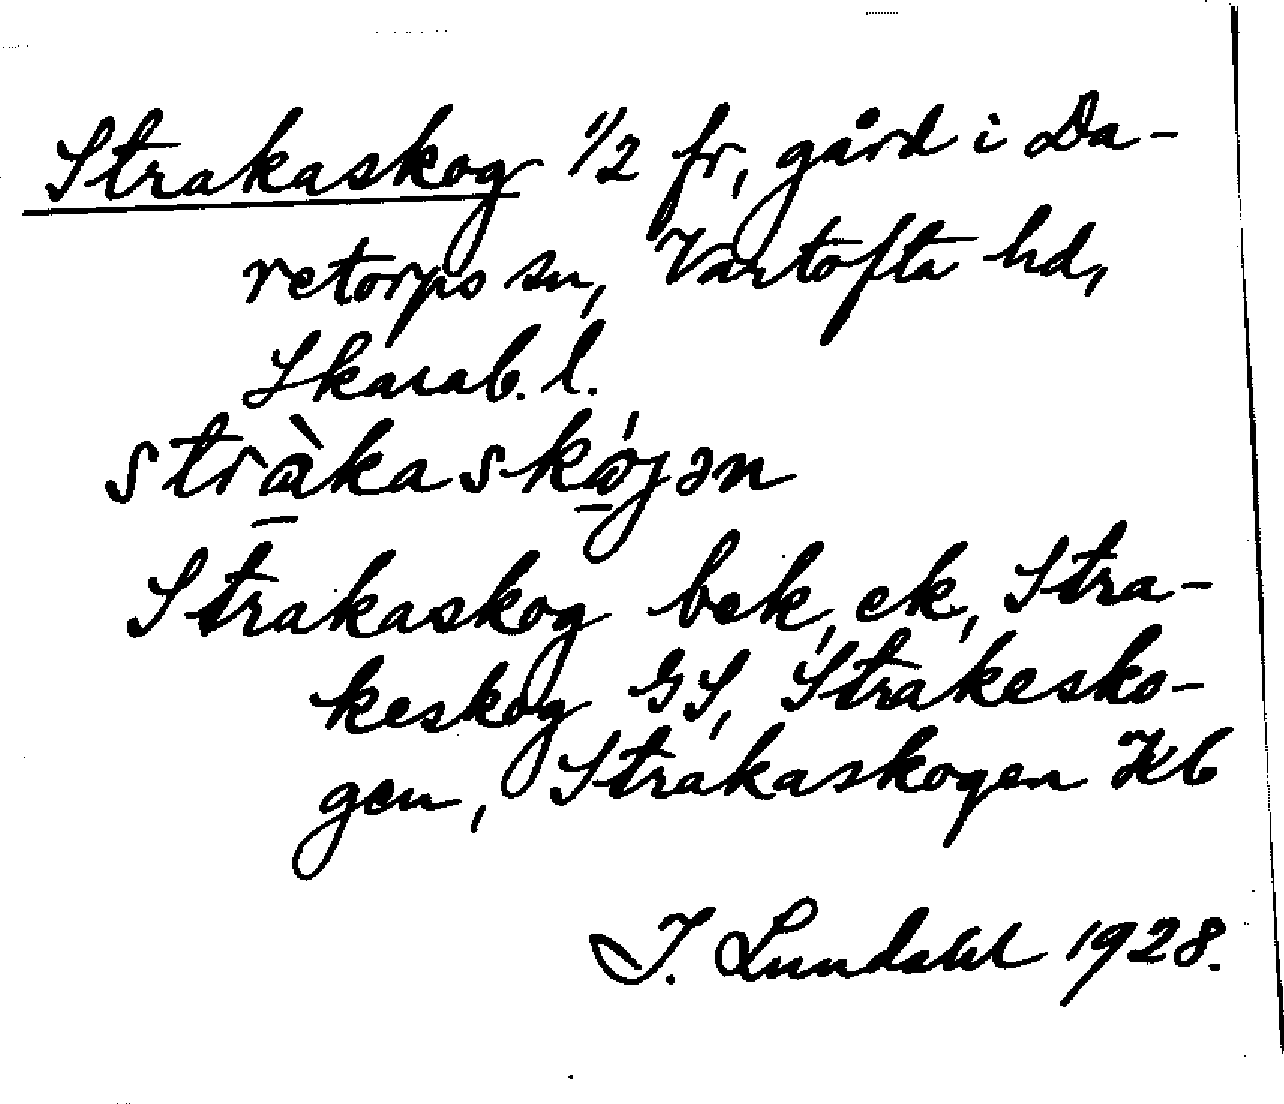 Strakaskog 1/2 fr, gård i Da-
retorps sn, Vartofta hd,
Skarab. l.
stràkaskójən
Strakaskog bek, ek, Stra-
keskog GS, Strakesko-
gen, Strakaskogen Kb
I. Lundahl 1928.